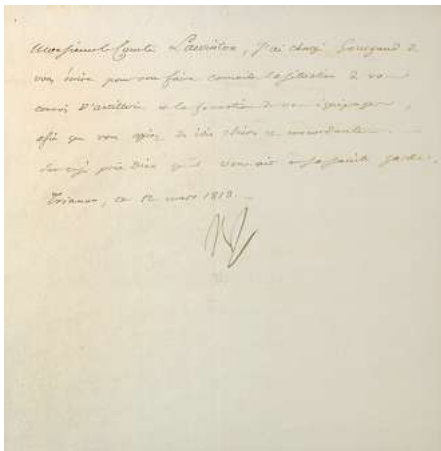 Monsieur le Comte Lauriston, j'ai chargé Gourgaud de
vous écrire pour vous faire connaître la situation de vos
convois d'artillerie et la formation de vos équipages,
afin que vous ayez des idées claires et
Sur ce je prie Dieu qu'il vous ait en sa sainte garde.
Trianon, ce 12 mars 1813.